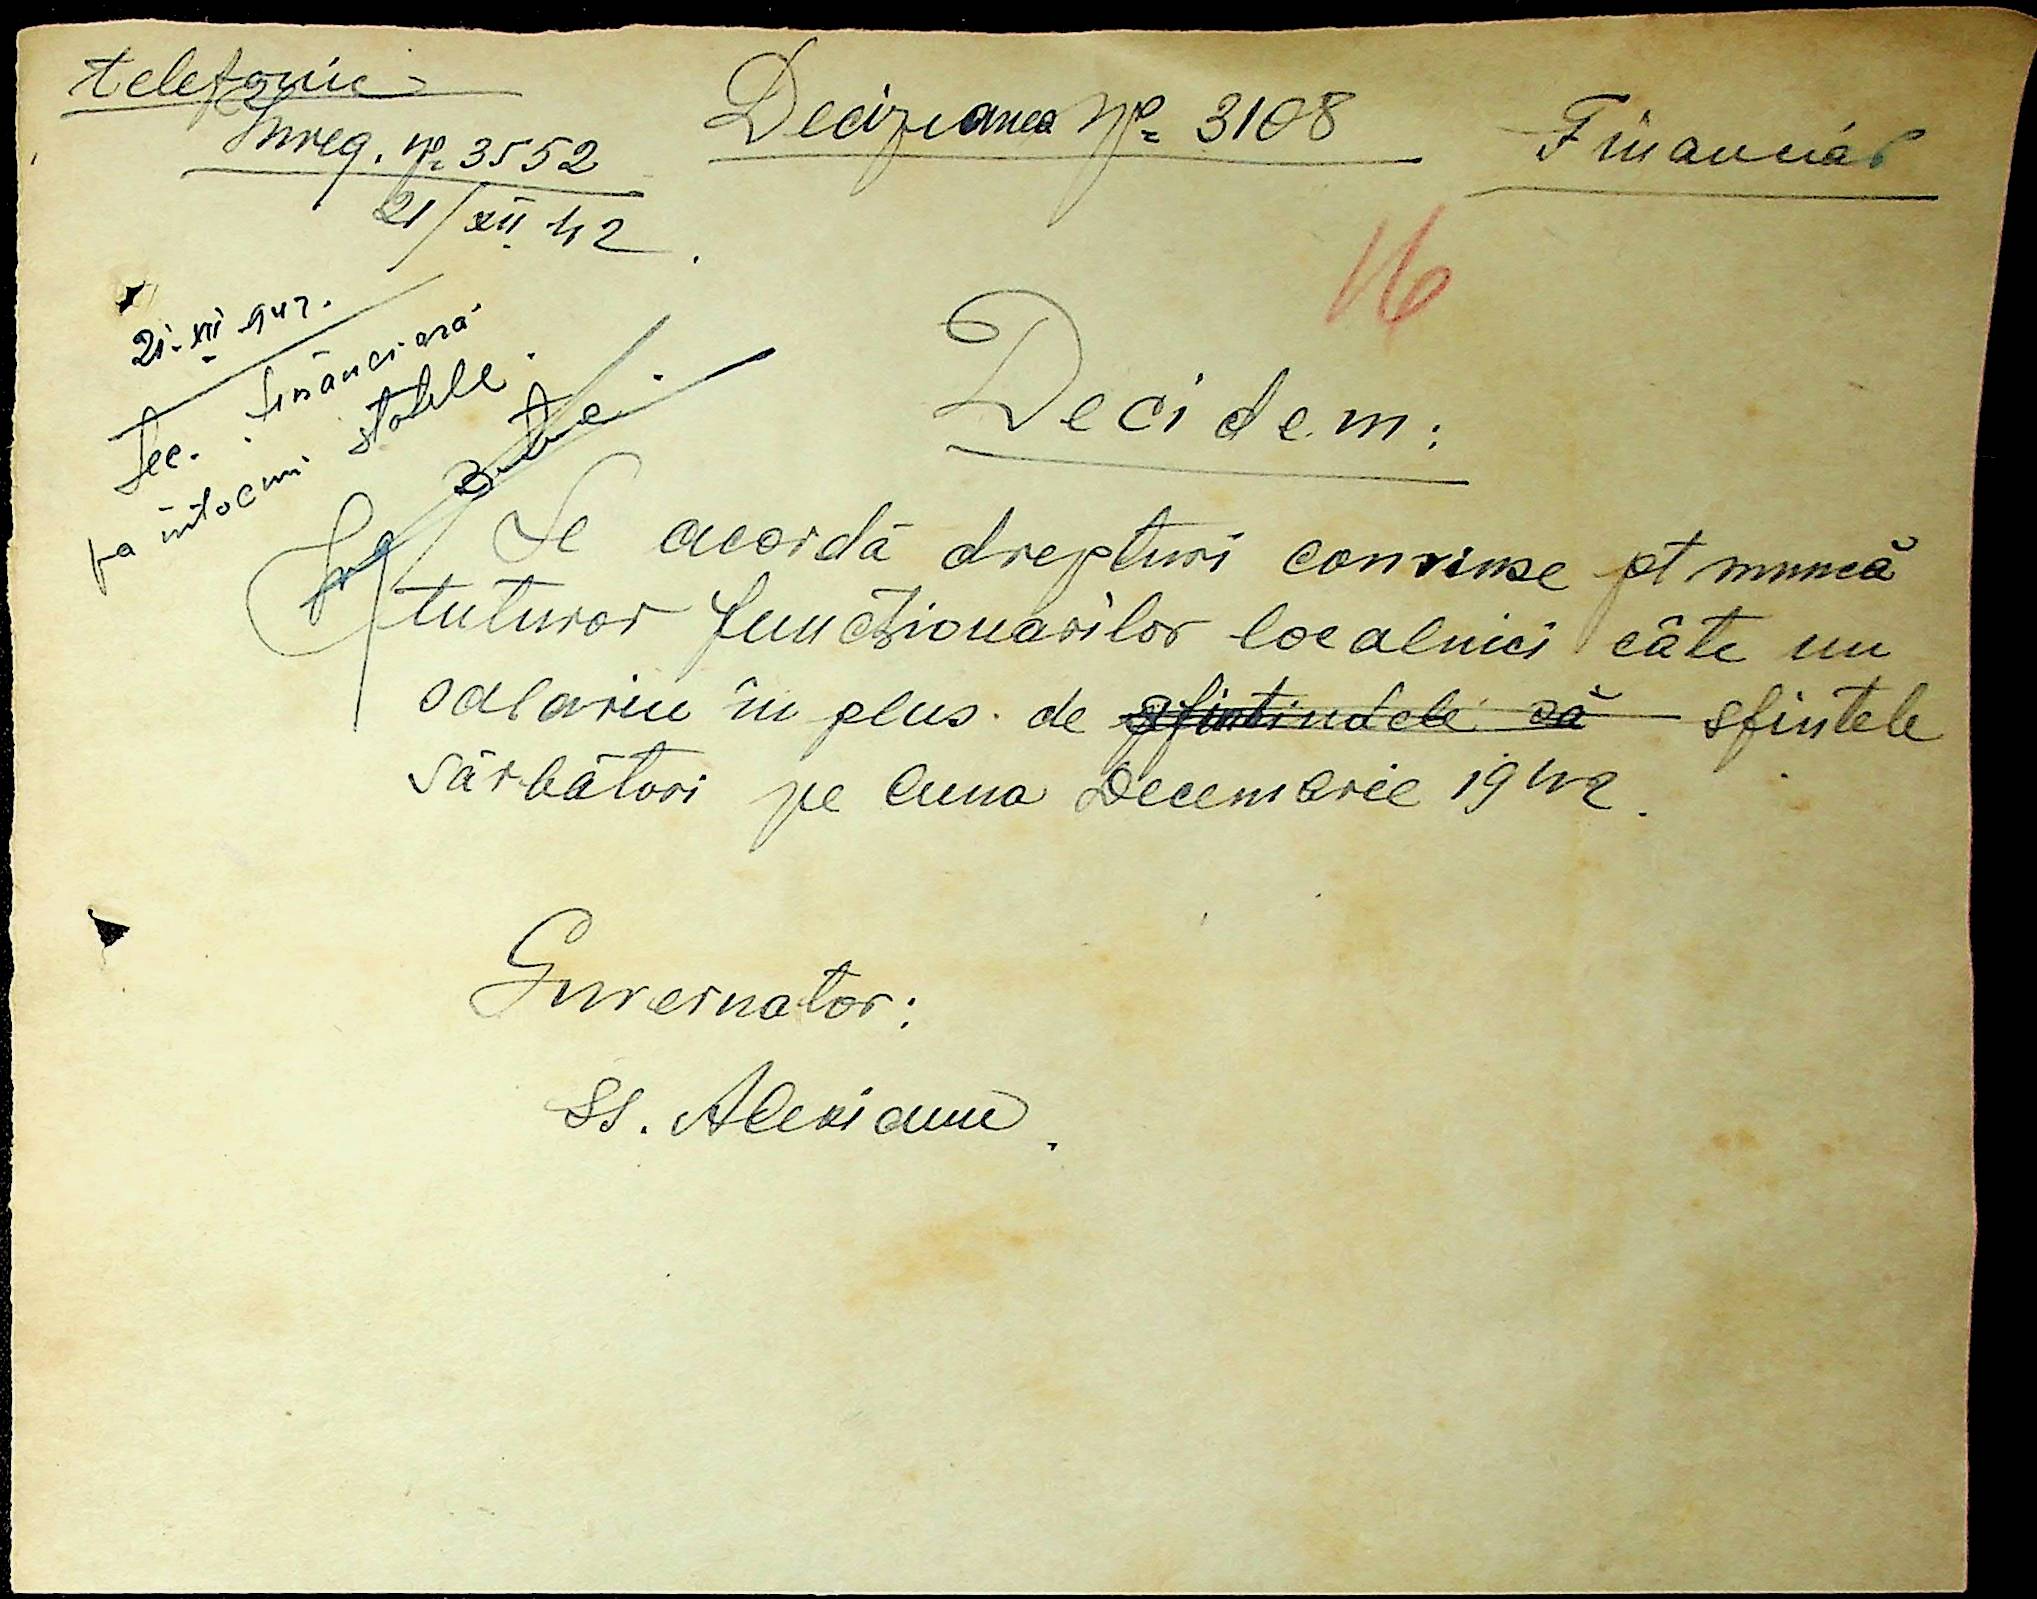 telefonic
Înreg. No 3552
21/XII 42.
Deciziunea No 3108
Financiár
16
21-XII-942.
Sec. financiară
pa întocmi statele.
Decidem:
Se acordă drepturi convinse pt muncă
tuturor funcționarilor localnici câte un
salariu în plus de sfintindele să sfintele
sărbători pe luna Decembrie 1942.
Guvernator:
ss. Alexianu.